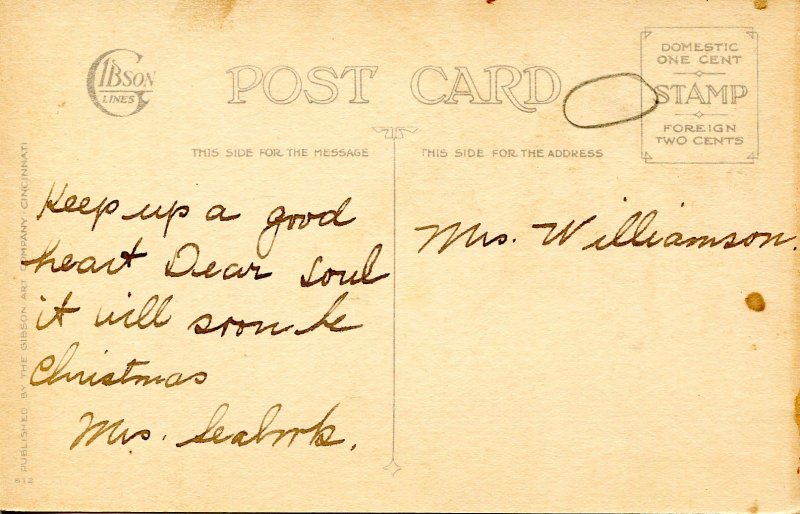 GIBSON
LINES
POST CARD
DOMESTIC
ONE CENT
STAMP
FOREIGN
TWO CENTS
THIS SIDE FOR THE MESSAGE
THIS SIDE FOR THE ADDRESS
Keep up a good
heart Dear soul
it will soon be
Christmas
Mrs. Seabrook.
Mrs. Williamson.
PUBLISHED BY THE GIBSON ART COMPANY CINCINNATI
812